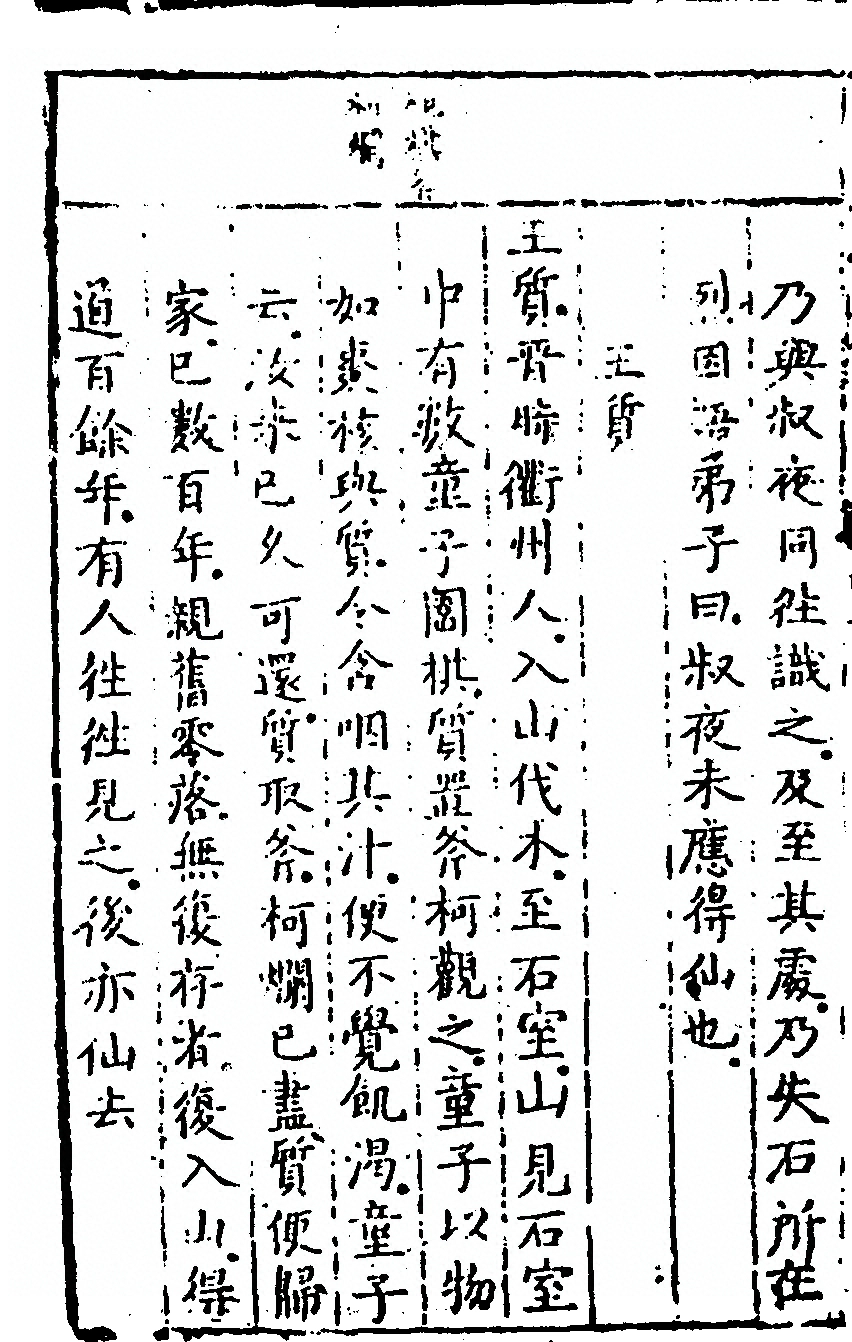 乃與叔夜同往識之及至其處乃失石所在
烈因語弟子曰叔夜未應得仙也
王質
王質晉時衢州人入山伐木至石室山見石室
中有数童子圍棋質置斧柯觀之童子以物
如棗核與質令含咽其汁便不覺飢渴童子
云汝來已久可還質取斧柯爛已盡質便歸
家已數百年親舊零落無復存者復入山得
道百餘年有人往往見之後亦仙去